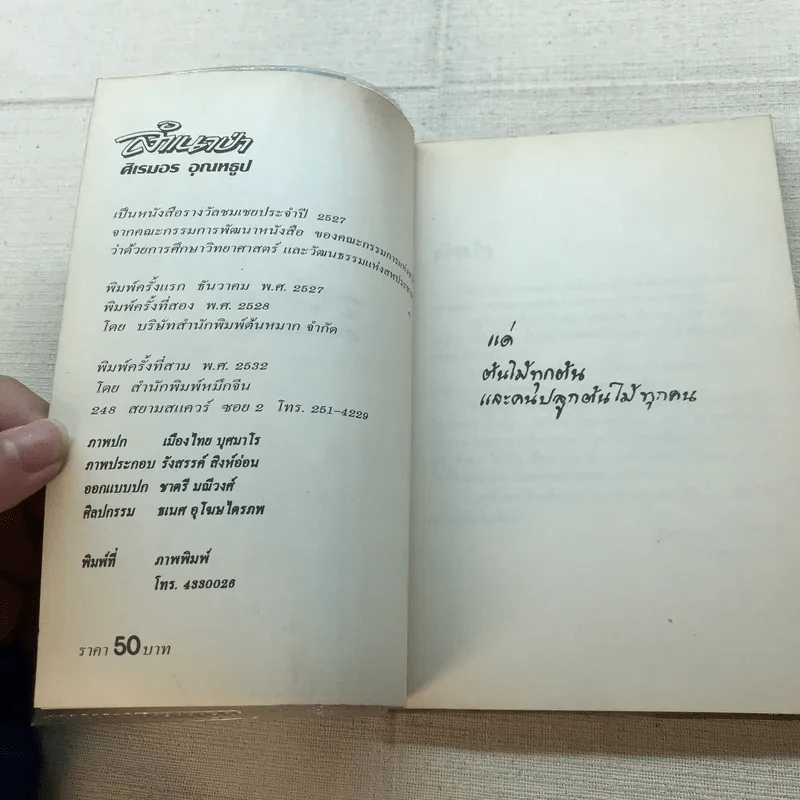 ลำเนาป่า
ศิเรมอร อุณหธูป
เป็นหนังสือรางวัลชมเชยประจำปี 2527
จากคณะกรรมการพัฒนาหนังสือ ของคณะกรรมการแห่งชาติ
ว่าด้วยการศึกษาวิทยาศาสตร์ และวัฒนธรรมแห่งสหประชา
พิมพ์ครั้งแรก ธันวาคม พ.ศ. 2527
พิมพ์ครั้งที่สอง พ.ศ. 2528
โดย บริษัทสำนักพิมพ์ต้นหมาก จำกัด
พิมพ์ครั้งที่สาม พ.ศ. 2532
โดย สำนักพิมพ์หมึกจีน
248 สยามสแควร์ ซอย 2 โทร. 251-4229
ภาพปก เมืองไทย บุศมาโร
ภาพประกอบ รังสรรค์ สิงห์อ่อน
ออกแบบปก ชาตรี มณีวงศ์
ศิลปกรรม ธเนศ อุโฆษไตรภพ
พิมพ์ที่ ภาพพิมพ์
โทร. 4330026
ราคา 50 บาท
แด่
ต้นไม้ทุกต้น
และคนปลูกต้นไม้ทุกคน